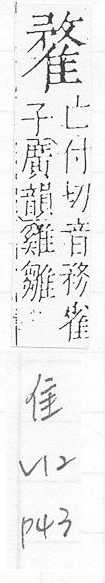 亡付切音務雀
子廣韻雞雛
隹
V12
P43